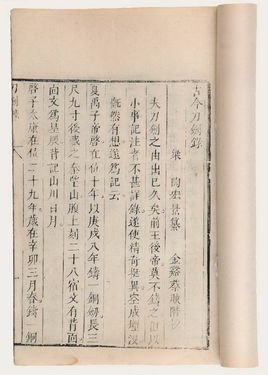 古今刀劍錄
梁 陶宏景纂 金谿蔡
夫刀劍之由出已久矣前王後帝莫不鑄之但以
小事記注者不甚詳錄遂使精奇挺異空成湮没
慨然有想遂爲記云
夏禹子帝啓在位十年以庚戌八年鑄一銅劍長三
尺九寸後藏之秦望山腹上刻二十八宿文有背面
面文爲星辰背記山川日月
啓子太康在位二十九年歲在辛卯三月春鑄一銅
刀劍錄